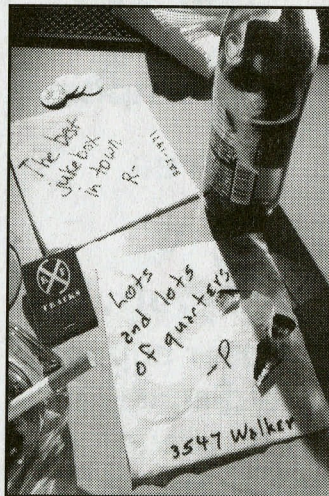 The best
juke box
in town.
R-
TRACKS
Lots
and lots
of quarters
-P
3547 Walker